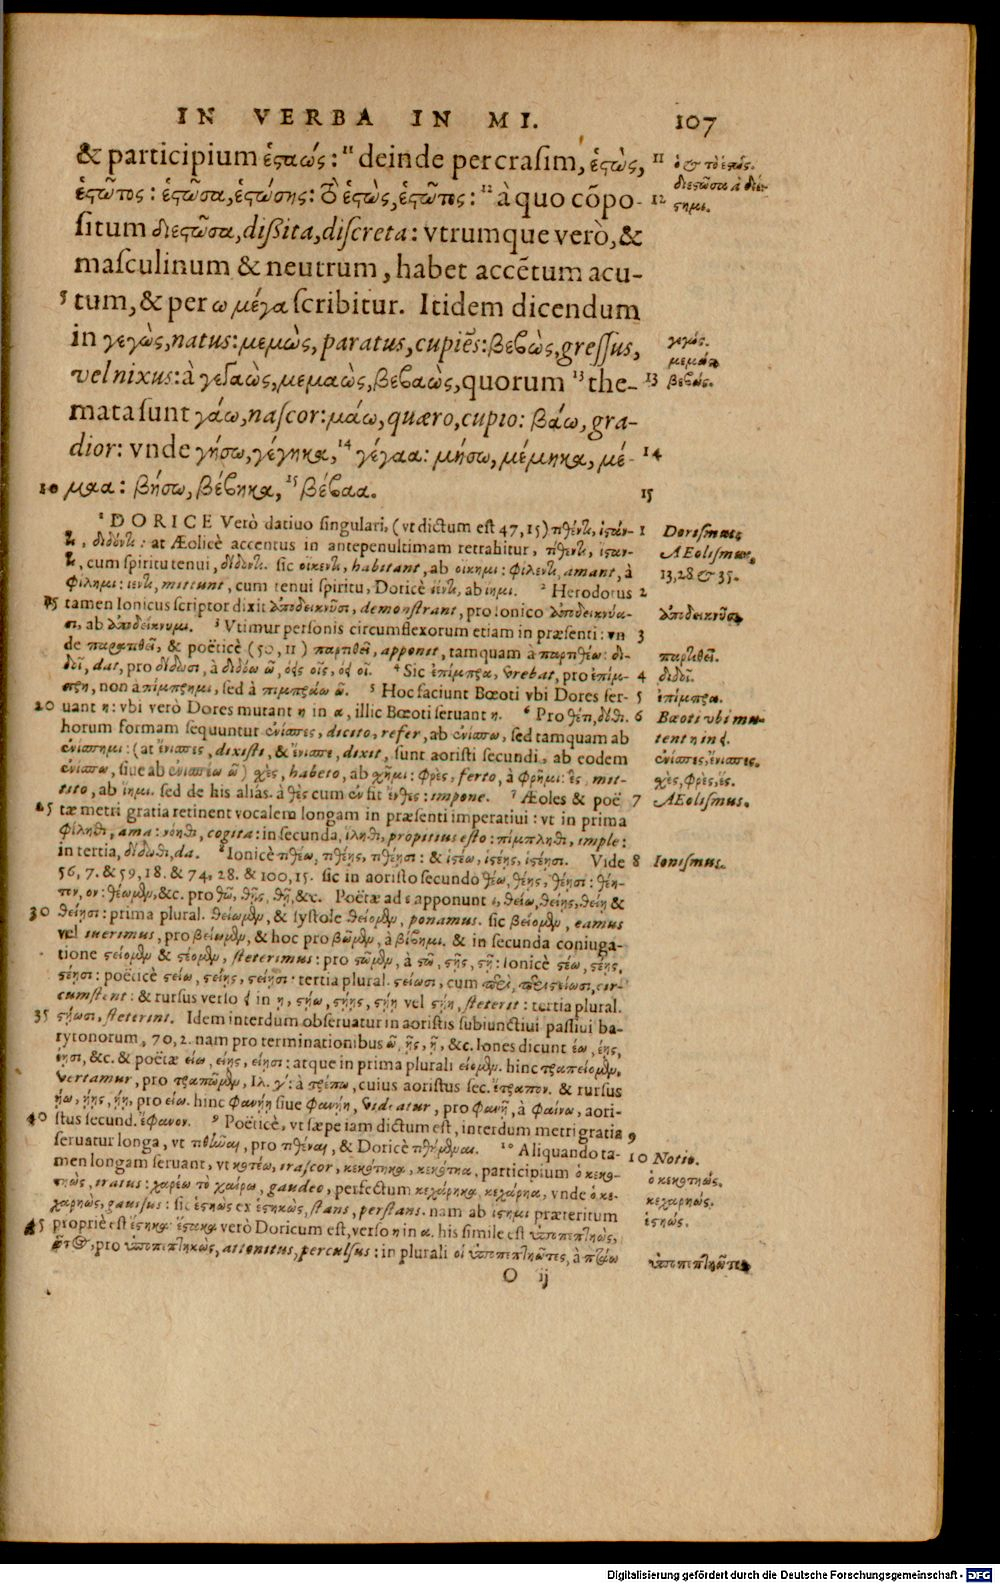 IN VERBA IN MI. 107
& participium ἑςαώς: ¹¹ deinde per crasim, ἑςὼς,
ἑςῶτος: ἑςῶσα, ἑςώσης: τὸ ἑςὼς, ἑςῶτος: ¹² à quo cõpo-
situm διεςῶσα, dißita, discreta: vtrumque verò, &
masculinum & neutrum, habet accẽtum acu-
5 tum, & per ω μέγα scribitur. Itidem dicendum
in γεγὼς, natus: μεμὼς, paratus, cupiẽs: βεβὼς, gressus,
vel nixus: à γεγαὼς, μεμαὼς, βεβαὼς, quorum ¹³ the-
mata sunt γάω, nascor: μάω, quæro, cupio: βάω, gra-
dior: vnde γήσω, γέγηκα, ¹⁴ γέγαα: μήσω, μέμηκα, μέ-
10 μαα: βήσω, βέβηκα, ¹⁵ βέβαα.
11 ὁ & τὸ ἑςώς.
12 διεςῶσα à διΐ-
ςημι.
γεγώς.
μεμώς.
13 βεβώς.
14
15
¹ DORICE Verò datiuo singulari, (vt dictum est 47, 15) τιθέντι, ἱςάν-
τι, διδόντι: at Æolicè accentus in antepenultimam retrahitur, τίθεντι, ἵςαν-
τι, cum spiritu tenui, δίδοντι. sic οἴκεντι, habitant, ab οἴκημι: φίλεντι, amant, à
φίλημι: ἱεντι, mittunt, cum tenui spiritu, Doricè ἵεντι, ab ἵημι. ² Herodotus
15 tamen Ionicus scriptor dixit ἀποδεικνῦσι, demonstrant, pro Ionico ἀποδεικνύα-
σι, ab ἀποδείκνυμι. ³ Vtimur personis circumflexorum etiam in præsenti: vn
de παρατιθεῖ, & poëticè (50, 11) παρτιθεῖ, apponit, tamquam à παρτιθέω: δι-
δοῖ, dat, pro δίδωσι, à διδόω ῶ, όεις οῖς, όει οῖ. ⁴ Sic ἐπίμπρα, vrebat, pro ἐπίμ-
πρη, non à πίμπρημι, sed à πιμπράω ῶ. ⁵ Hoc faciunt Bœoti vbi Dores ser-
20 uant η: vbi verò Dores mutant η in α, illic Bœoti seruant η. ⁶ Pro θέτι, δόθι.
horum formam sequuntur ἐνίσπες, dicito, refer, ab ἐνίσπω, sed tamquam ab
ἐνίσπημι: (at ἔνισπες, dixisti, & ἔνισπε, dixit, sunt aoristi secundi, ab eodem
ἐνίσπω, siue ab ἐνισπέω ῶ) χὲς, habeto, ab χῆμι: φρὲς, ferto, à φρῆμι: ἓς, mit-
tito, ab ἵημι. sed de his aliàs. à θὲς cum ἐν fit ἔνθες: impone. ⁷ Æoles & poë
25 tæ metri gratia retinent vocalem longam in præsenti imperatiui: vt in prima
φίληθι, ama: νόηθι, cogita: in secunda, ἵληθι, propitius esto: πίμπληθι, imple:
in tertia, δίδωθι, da. ⁸ Ionicè τιθέω, τιθέῃς, τιθέῃσι: & ἱςέω, ἱςέῃς, ἱςέῃσι. Vide
56, 7. & 59, 18. & 74, 28. & 100, 15. sic in aoristo secundo θέω, θέῃς, θέῃσι: θέη-
τον, ον: θέωμεν, &c. pro θῶ, θῇς, θῇ, &c. Poëtæ ad ε apponunt ι, θείω, θείῃς, θείῃ &
30 θείῃσι: prima plural. θείωμεν, & systole θείομεν, ponamus. sic βείομεν, eamus
vel iuerimus, pro βείωμεν, & hoc pro βῶμεν, à βίβημι. & in secunda coniuga-
tione ςείομεν & ςέομεν, steterimus: pro ςῶμεν, à ςῶ, ςῇς, ςῇ: Ionicè ςέω, ςέῃς,
ςέῃσι: poëticè ςείω, ςείῃς, ςείῃσι: tertia plural. ςείωσι, cum περὶ, περιςείωσι, cir-
cumstent: & rursus verso ει in η, ςήω, ςήῃς, ςήῃ vel ςήῃ, steterit: tertia plural.
35 ςήωσι, steterint. Idem interdum obseruatur in aoristis subiunctiui passiui ba-
rytonorum, 70, 2. nam pro terminationibus ῶ, ῇς, ῇ, &c. Iones dicunt έω, έῃς,
έῃσι, &c. & poëtæ είω, είῃς, είῃσι: atque in prima plurali είομεν. hinc τραπείομεν,
vertamur, pro τραπῶμεν, Ιλ. γ΄: à τρέπω, cuius aoristus sec. ἔτραπον. & rursus
ήω, ήῃς, ήῃ, pro είω. hinc φανήῃ siue φανήῃ, videatur, pro φανῇ, à φαίνω, aori-
40 stus secund. ἔφανον. ⁹ Poëticè, vt sæpe iam dictum est, interdum metri gratia
seruatur longa, vt τιθῆναι, pro τιθέναι, & Doricè τιθήμεναι. ¹⁰ Aliquando ta-
men longam seruant, vt κοτέω, irascor, κεκότηκα, κεκότηα, participium ὁ κεκο-
τηὼς, iratus: χαρέω τὸ χαίρω, gaudeo, perfectum κεχάρηκα, κεχάρηα, vnde ὁ κε-
χαρηὼς, gauisus: sic ἑςηὼς ex ἑςηκὼς, stans, perstans. nam ab ἵςημι præteritum
45 propriè est ἕςηκα: ἕςακα verò Doricum est, verso η in α. his simile est ὑποπεπτηὼς,
ότος, pro ὑποπεπτηκὼς, attonitus, perculsus: in plurali οἱ ὑποπεπτηῶτες, à πτάω
1 Dorismus
Æolismus,
13, 28. & 35.
2
ἀποδεικνῦσι.
3
παρτιθεῖ.
4 διδοῖ.
5 ἐπίμπρα.
6 Bœoti vbi mu-
tent η in ει.
ἐνίσπες, ἔνισπες.
χὲς, φρὲς, ἕς.
7 Æolismus.
8 Ionismus.
9
10 Notio.
ὁ κεκοτηώς.
κεχαρηώς.
ἑςηώς.
ὑποπεπτηῶτες
O ij
Digitalisierung gefördert durch die Deutsche Forschungsgemeinschaft - DFG